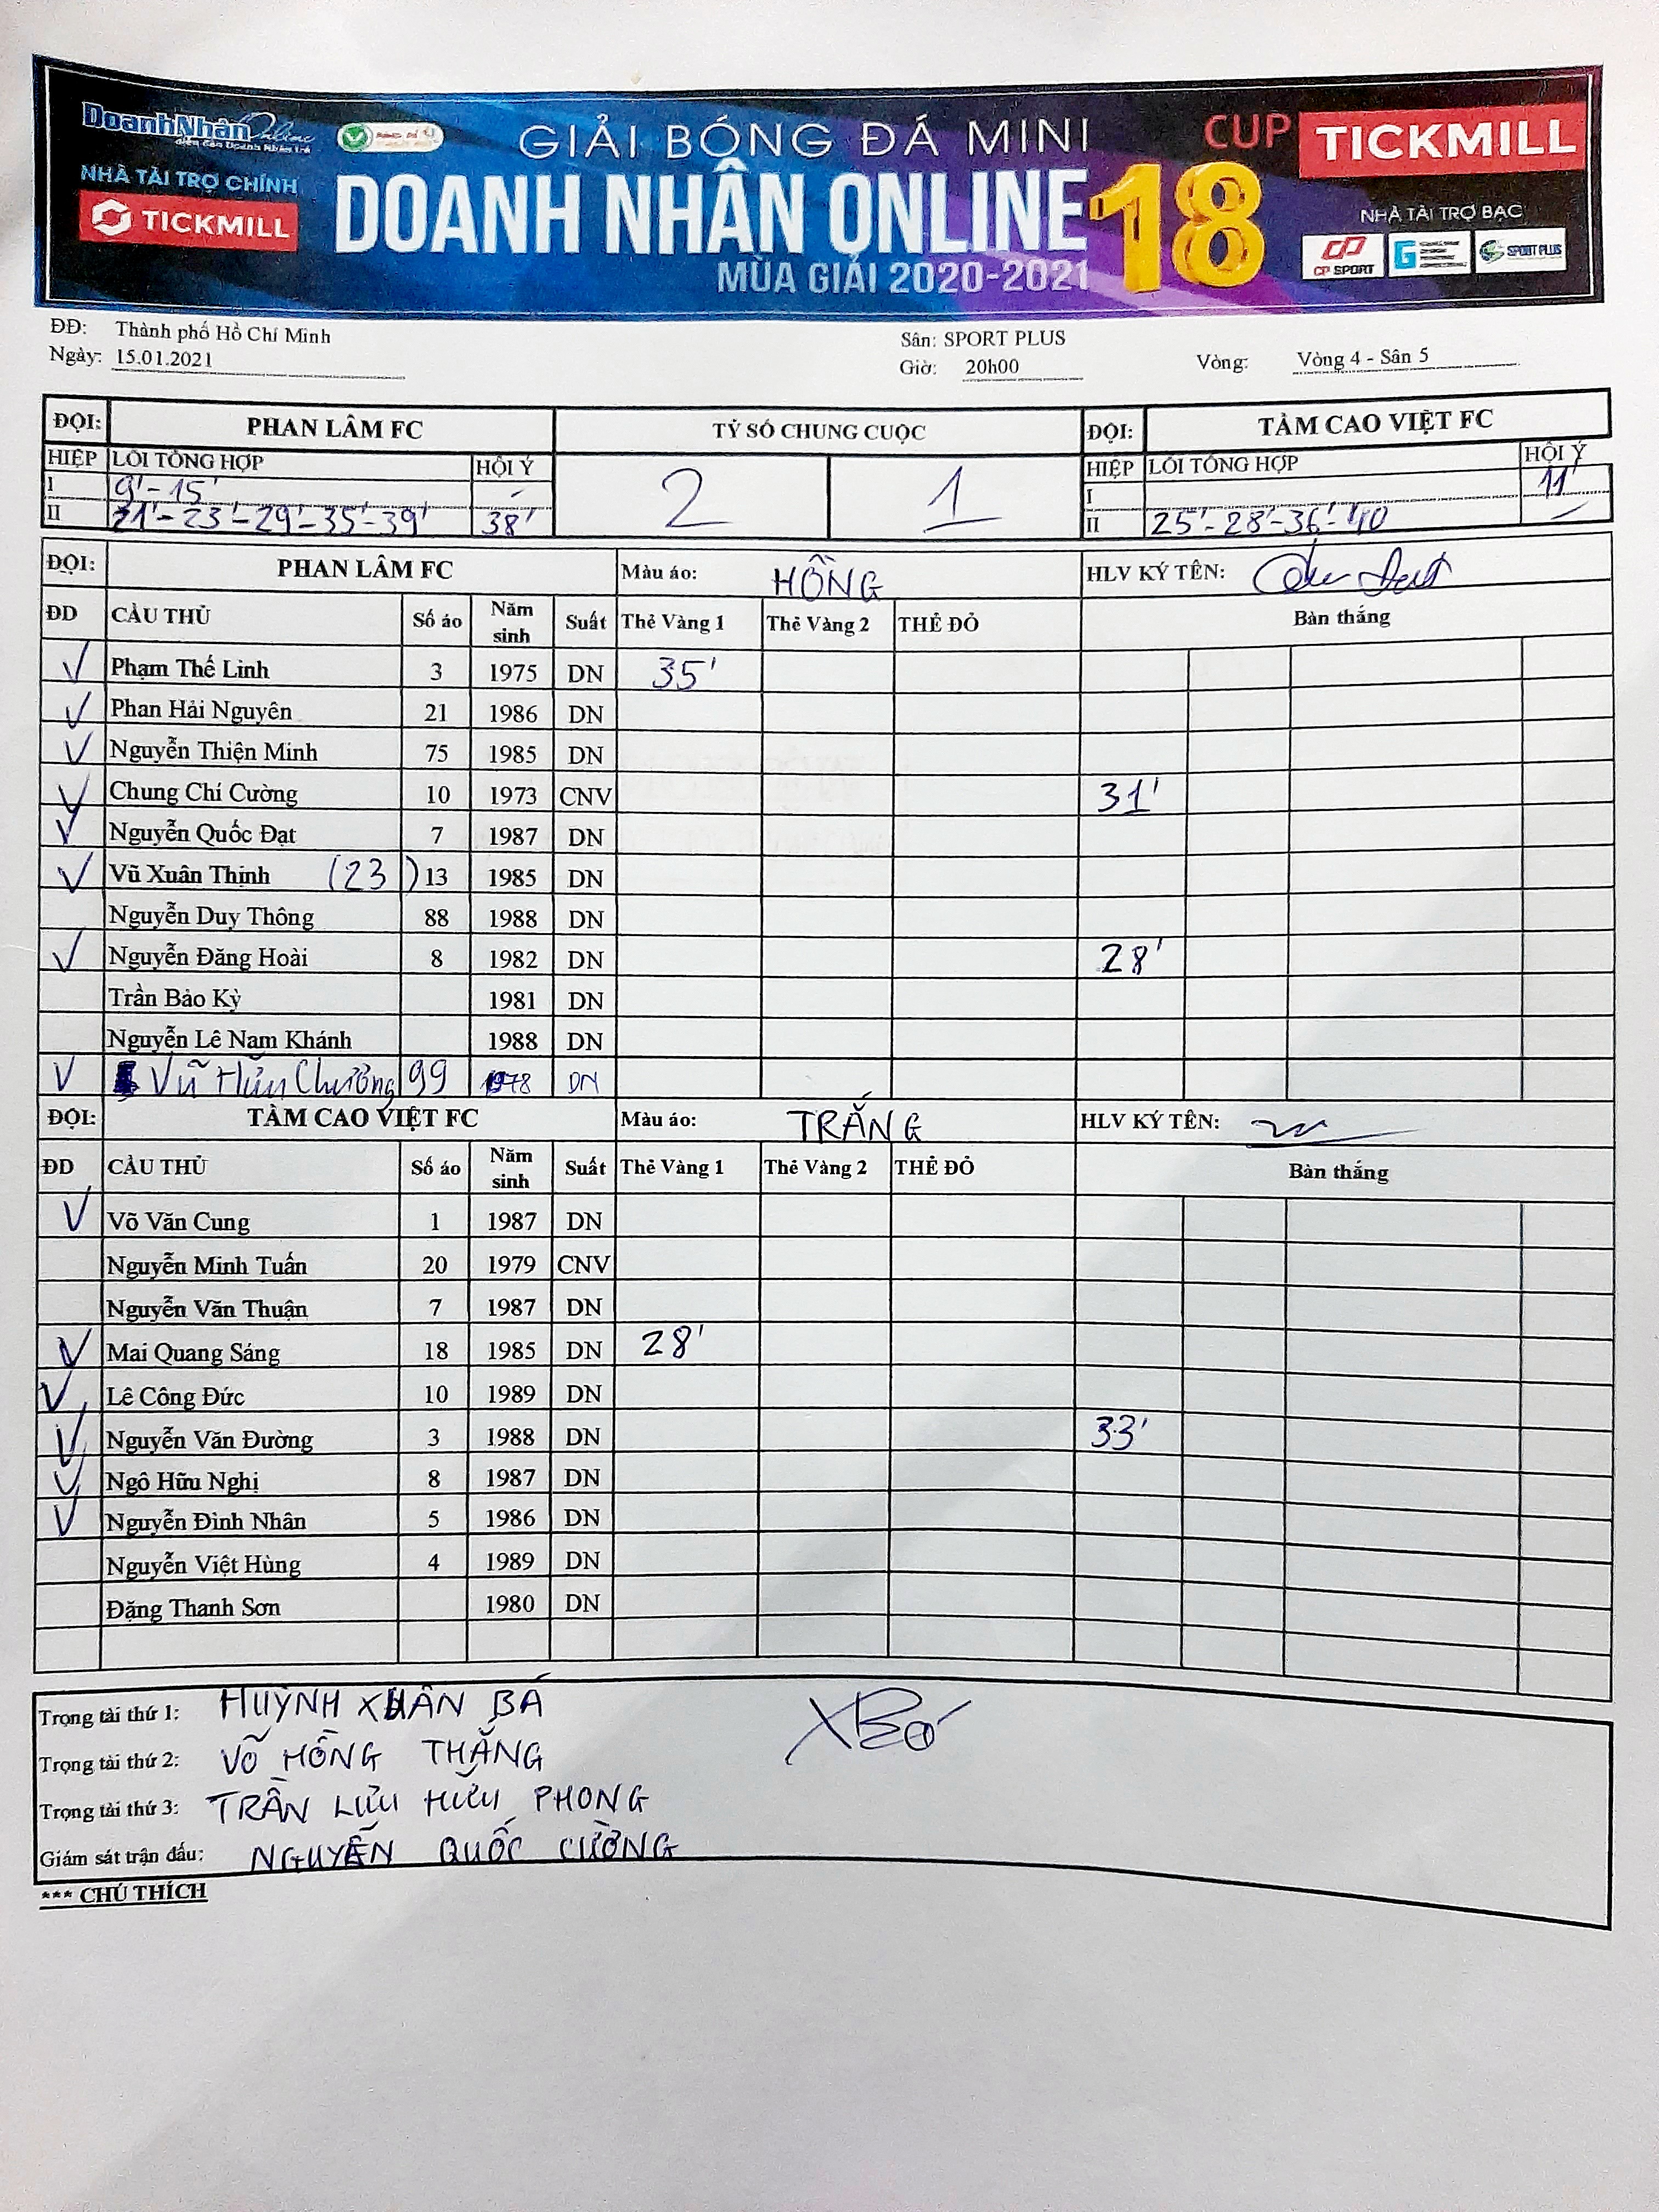 DoanhNhân Online
diễn đàn Doanh Nhân trẻ
NHÀ TÀI TRỢ CHÍNH
TICKMILL
GIẢI BÓNG ĐÁ MINI
DOANH NHÂN ONLINE 18
MÙA GIẢI 2020-2021
CUP TICKMILL
NHÀ TÀI TRỢ BẠC
CP SPORT
SPORT PLUS
ĐĐ: Thành phố Hồ Chí Minh Sân: SPORT PLUS
Ngày: 15.01.2021 Giờ: 20h00 Vòng: Vòng 4 - Sân 5
ĐỘI: PHAN LÂM FC TỶ SỐ CHUNG CUỘC ĐỘI: TẦM CAO VIỆT FC
HIỆP LỖI TỔNG HỢP HỘI Ý 2 1 HIỆP LỖI TỔNG HỢP HỘI Ý
I 9'-15' - I 11'
II 21'-23'-29'-35'-39' 38' II 25'-28'-36'-40 -
ĐỘI: PHAN LÂM FC Màu áo: HỒNG HLV KÝ TÊN:
ĐD CẦU THỦ Số áo Năm sinh Suất Thẻ Vàng 1 Thẻ Vàng 2 THẺ ĐỎ Bàn thắng
V Phạm Thế Linh 3 1975 DN 35'
V Phan Hải Nguyên 21 1986 DN
V Nguyễn Thiện Minh 75 1985 DN
V Chung Chí Cường 10 1973 CNV 31'
V Nguyễn Quốc Đạt 7 1987 DN
V Vũ Xuân Thịnh (23) 13 1985 DN
Nguyễn Duy Thông 88 1988 DN
V Nguyễn Đăng Hoài 8 1982 DN 28'
Trần Bảo Kỳ 1981 DN
Nguyễn Lê Nam Khánh 1988 DN
V Vũ Hữu Chương 99 1978 DN
ĐỘI: TẦM CAO VIỆT FC Màu áo: TRẮNG HLV KÝ TÊN:
ĐD CẦU THỦ Số áo Năm sinh Suất Thẻ Vàng 1 Thẻ Vàng 2 THẺ ĐỎ Bàn thắng
V Võ Văn Cung 1 1987 DN
Nguyễn Minh Tuấn 20 1979 CNV
Nguyễn Văn Thuận 7 1987 DN
V Mai Quang Sáng 18 1985 DN 28'
V Lê Công Đức 10 1989 DN
V Nguyễn Văn Đường 3 1988 DN 33'
V Ngô Hữu Nghị 8 1987 DN
V Nguyễn Đình Nhân 5 1986 DN
Nguyễn Việt Hùng 4 1989 DN
Đặng Thanh Sơn 1980 DN
Trọng tài thứ 1: HUỲNH XUÂN BÁ
Trọng tài thứ 2: VÕ HỒNG THẮNG
Trọng tài thứ 3: TRẦN LƯU HỮU PHONG
Giám sát trận đấu: NGUYỄN QUỐC CƯỜNG
*** CHÚ THÍCH